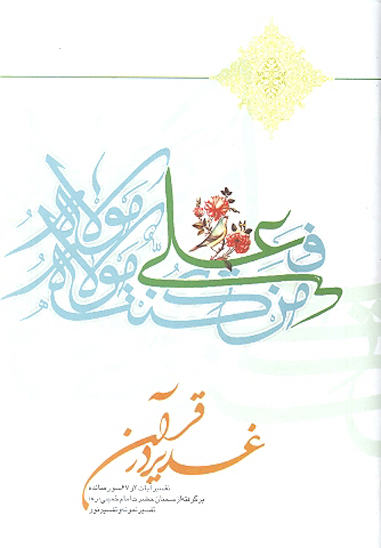 من کنت مولاه فعلی مولاه
غدیر در قرآن
تفسیر آیات و ۶۷ سوره مائده
برگرفته از سخنان حضرت امام خمینی (ره)
تفسیر نمونه و تفسیر نور